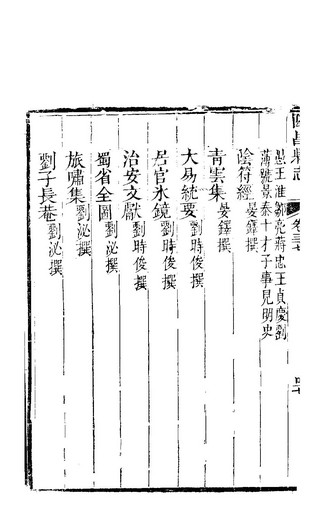 昌縣志 卷三
愚王淮鄒亮蔣忠王貞慶劉
溥號景泰十才子事見明史
陰符經晏鐸撰
青雲集晏鐸撰
大易統要劉時俊撰
居官水鏡劉時俊撰
治安文獻劉時俊撰
蜀省全圖劉泌撰
旅嘯集劉泌撰
劉子長巷劉泌撰